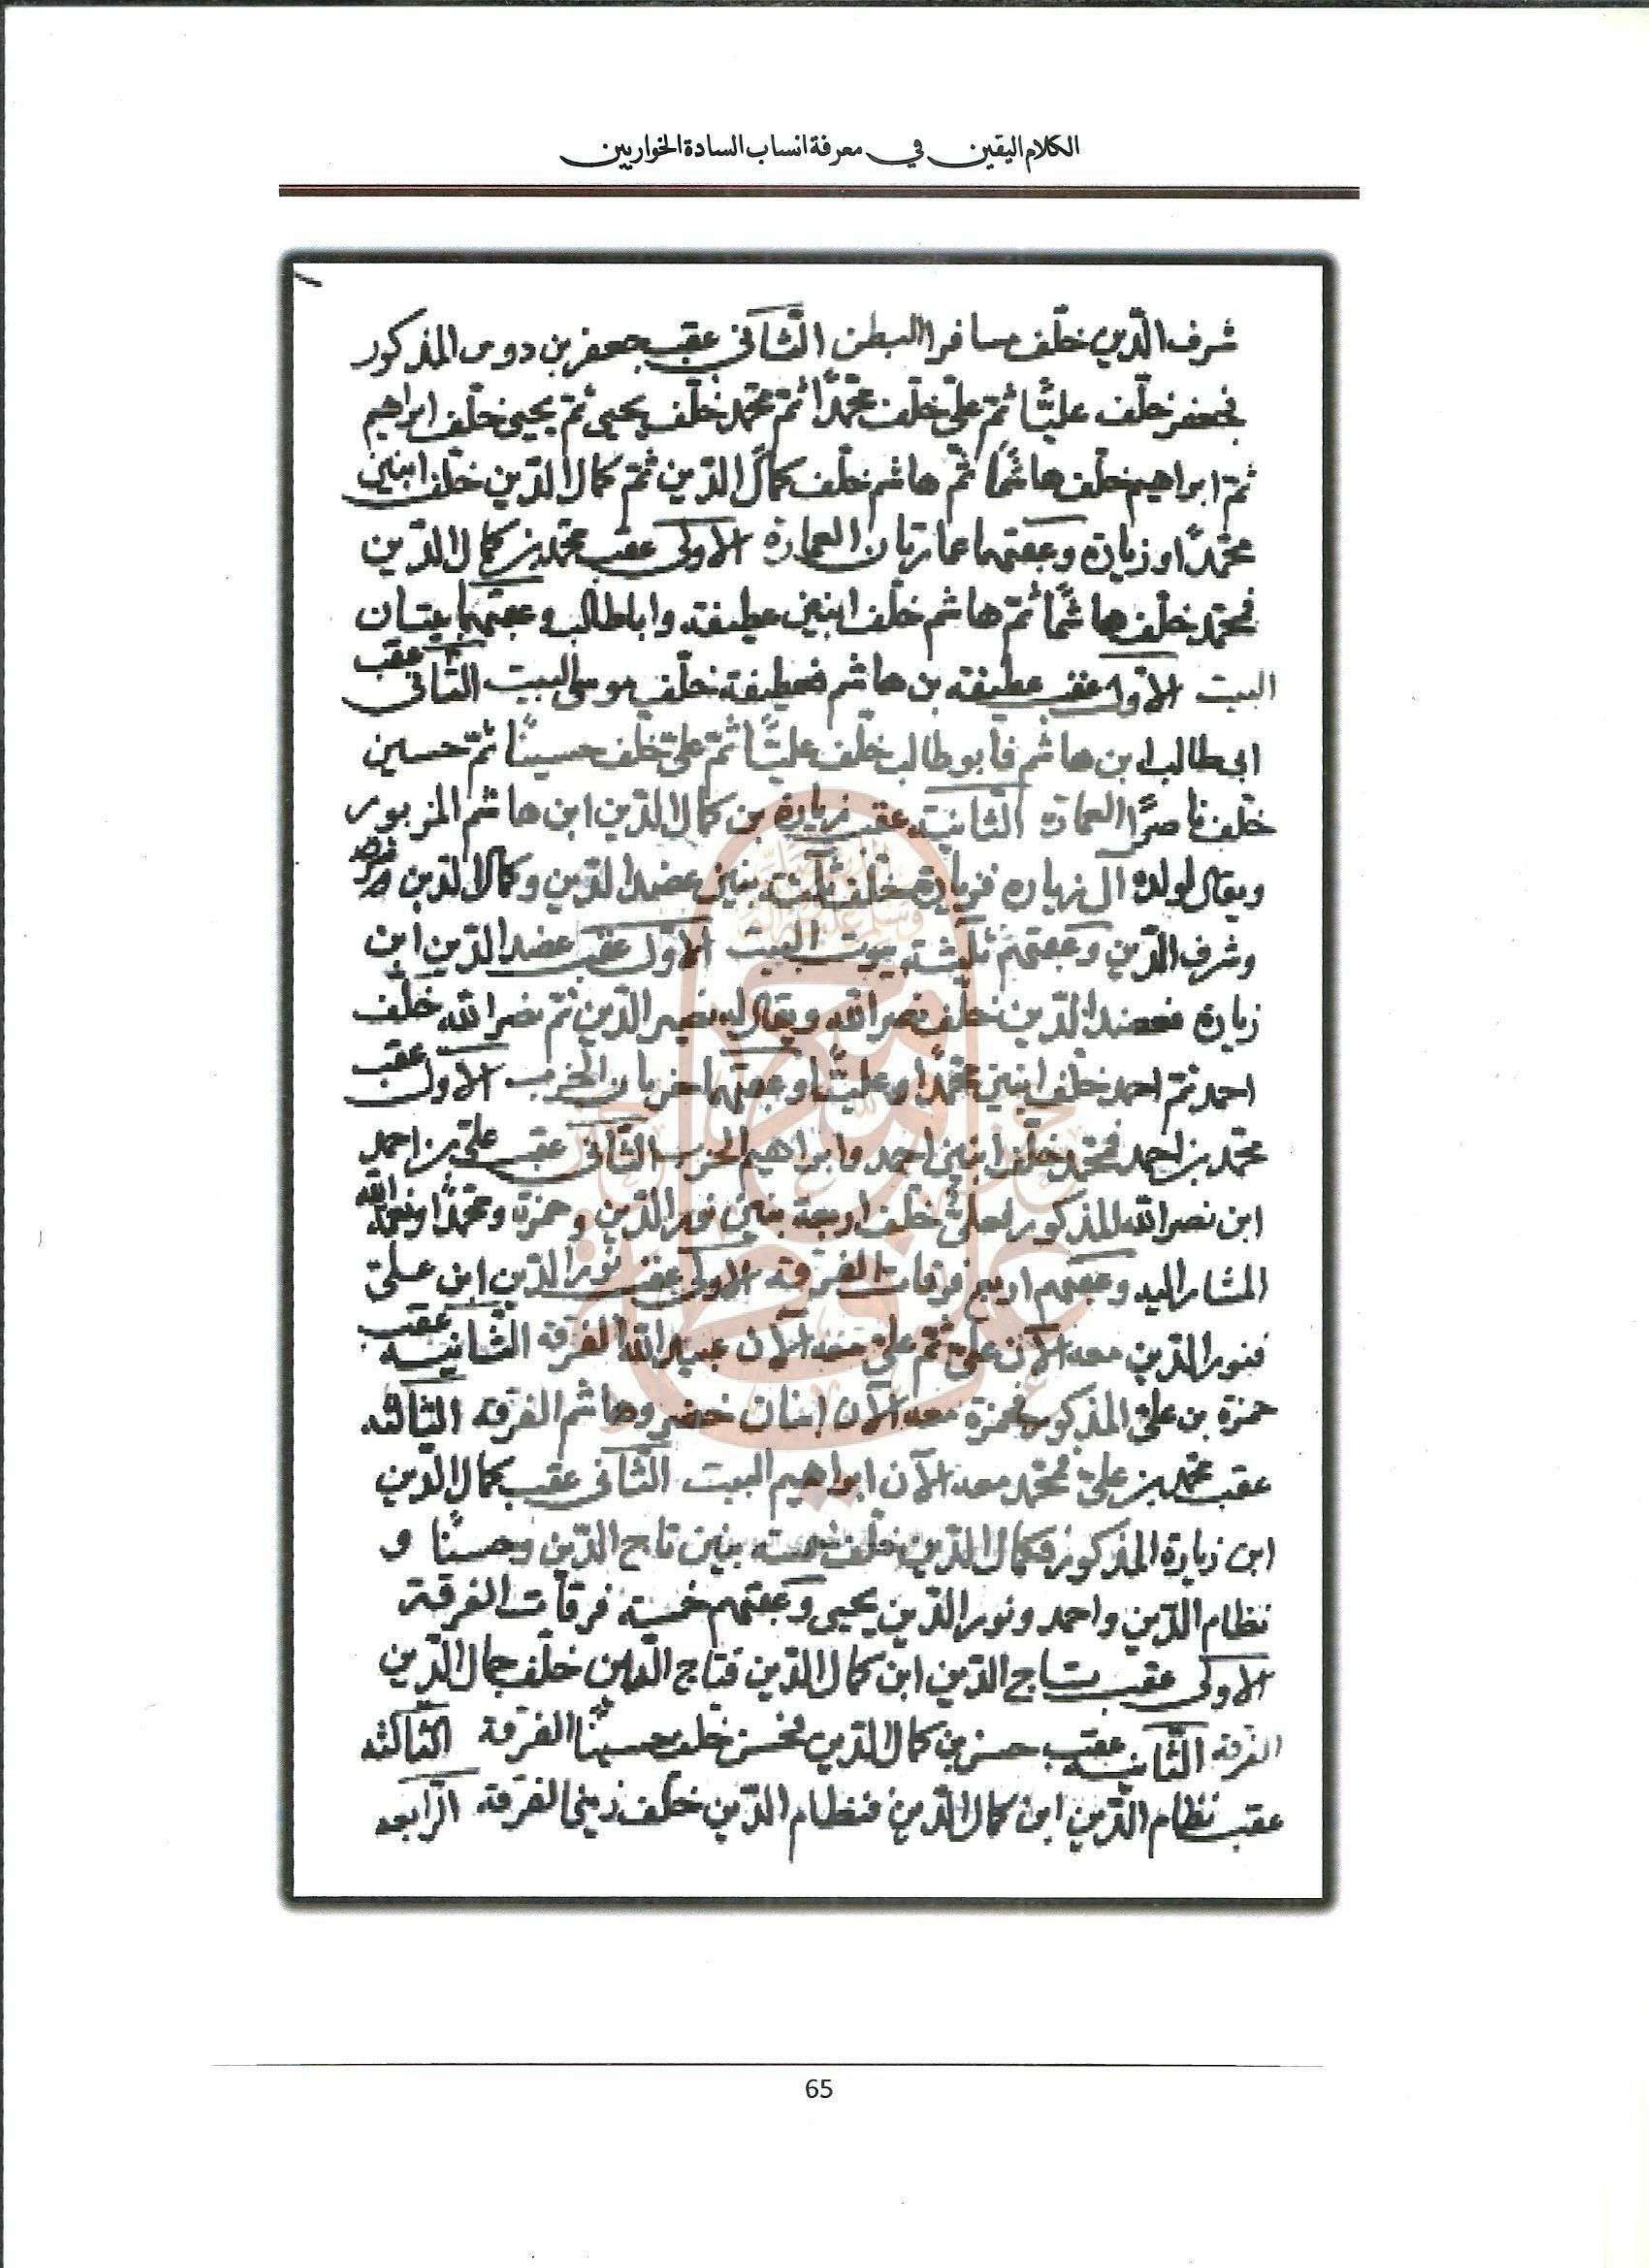 الكلام اليقين في معرفة انساب السادة الخواريين
شرف الدّين خلّف مسافرا البطن الثّاني عقب جعفر بن دوس المذكور
فجعفر خلّف عليًّا ثمّ عليّ خلّف محمّدًا ثمّ محمّد خلّف يحيى ثمّ يحيى خلّف ابراهيم
ثمّ ابراهيم خلّف هاشمًا ثمّ هاشم خلّف كمال الدّين ثمّ كمال الدّين خلّف ابنين
محمّدًا وزيارة وعقبهما عمارتان العمارة الاولى عقب محمّد بن كمال الدّين
فمحمّد خلّف هاشمًا ثمّ هاشم خلّف ابنين عطيفة واباطالب وعقبهما بيتان
البيت الاوّل عقب عطيفة بن هاشم فعطيفة خلّف موسى البيت الثاني عقب
ابي طالب ابن هاشم فابوطالب خلّف عليًّا ثمّ عليّ خلّف حسينًا ثمّ حسين
خلّف ناصرًا العمارة الثّانية عقب زيارة بن كمال الدّين ابن هاشم المزبور
ويقال لولده آل زياره فزيارة خلّف ثلثة بنين عضد الدّين وكمال الدّين
وشرف الدّين وعقبهم ثلثة بيوت البيت الاوّل عقب عضد الدّين ابن
زيارة فعضد الدّين خلّف نصر الله ويقال له نصير الدّين ثمّ نصر الله خلّف
احمد ثمّ احمد خلّف ابنين محمّدًا وعليًّا وعقبهما حزبان الحزب الاول عقب
محمّد بن احمد فمحمّد خلّف ابنين احمد وابراهيم الحزب الثّاني عقب عليّ بن احمد
ابن نصر الله المذكور فعليّ خلّف اربعة بنين نور الدّين وحمزة ومحمّدًا ونعمة الله
المشار اليه وعقبهم اربع فرقات الفرقة الاولى عقب نور الدّين ابن عليّ
فنور الدّين معه الآن عليّ ثمّ عليّ معه الآن عبد الله الفرقة الثّانية عقب
حمزة بن عليّ المذكور فحمزة معه الآن ابنان خضر وهاشم الفرقة الثالثه
عقب محمّد بن عليّ فمحمّد معه الآن ابراهيم البيت الثّاني عقب كمال الدّين
ابن زيارة المذكور فكمال الدّين خلّف خمسة بنين تاج الدّين وحسنًا و
نظام الدّين واحمد ونور الدّين يحيى وعقبهم خمسة فرقات الفرقة
الاولى عقب تاج الدّين ابن كمال الدّين فتاج الدّين خلّف جمال الدّين
الفرقة الثّانية عقب حسن بن كمال الدّين فحسن خلّف حسينًا الفرقة الثالثه
عقب نظام الدّين ابن كمال الدّين فنظام الدّين خلّف الفرقة الرّابعه
65